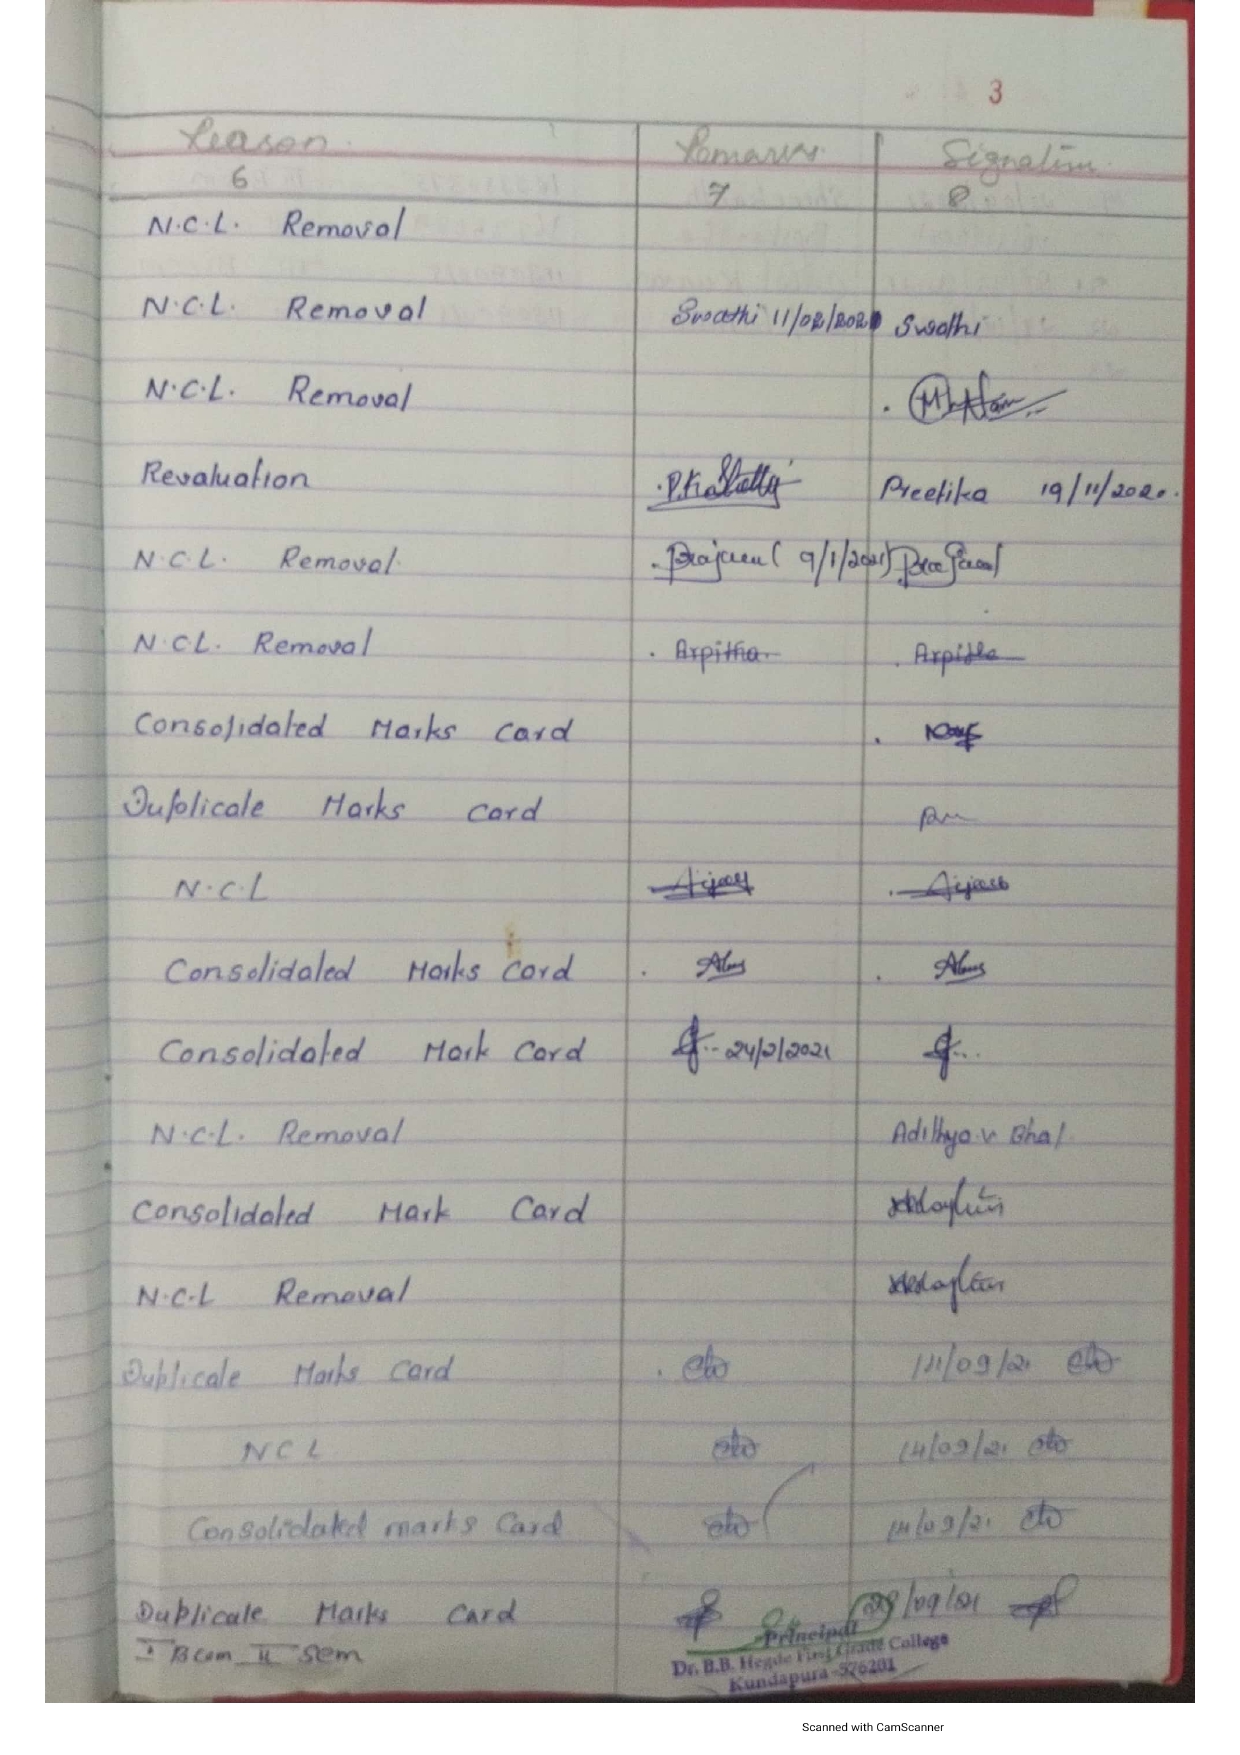 3
Reason Remarks Signature
6 7 8
N.C.L. Removal
N.C.L. Removal Swathi 11/02/2021 Swathi
N.C.L. Removal
Revaluation P.K.Shetty Preetika 19/11/2020.
N.C.L. Removal 9/1/2021
N.C.L. Removal Arpitha Arpitha
Consolidated Marks Card
Duplicate Marks Card
N.C.L
Consolidated Marks Card
Consolidated Mark Card 24/2/2021
N.C.L. Removal Adithya v Bhat
Consolidated Mark Card
N.C.L Removal
Duplicate Marks Card 14/09/21
NCL 14/09/21
Consolidated marks Card 14/09/21
Duplicate Marks Card 28/09/21
I Bcom II Sem
Principal
Dr. B.B. Hegde First Grade College
Kundapura -576201
Scanned with CamScanner